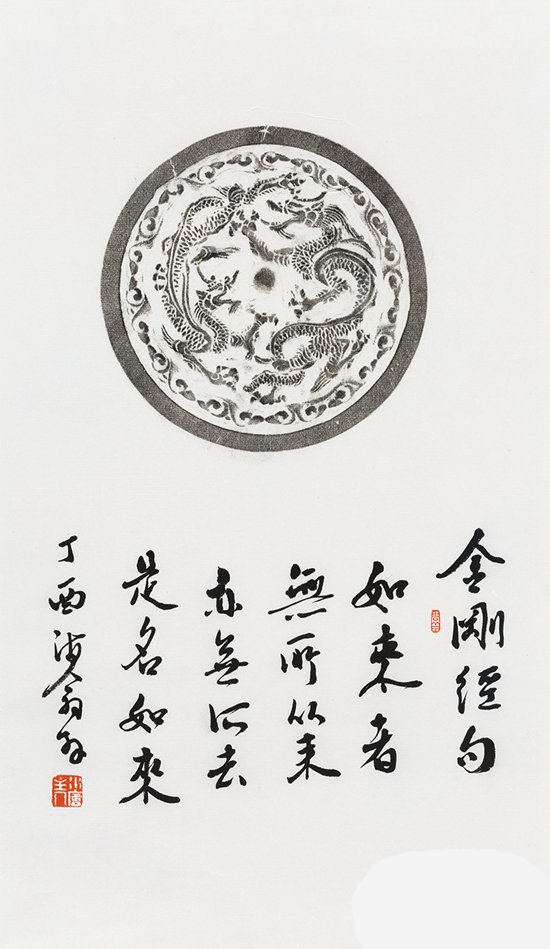 金剛經句
如来者
無所从来
亦無所去
是名如來
丁酉海翁